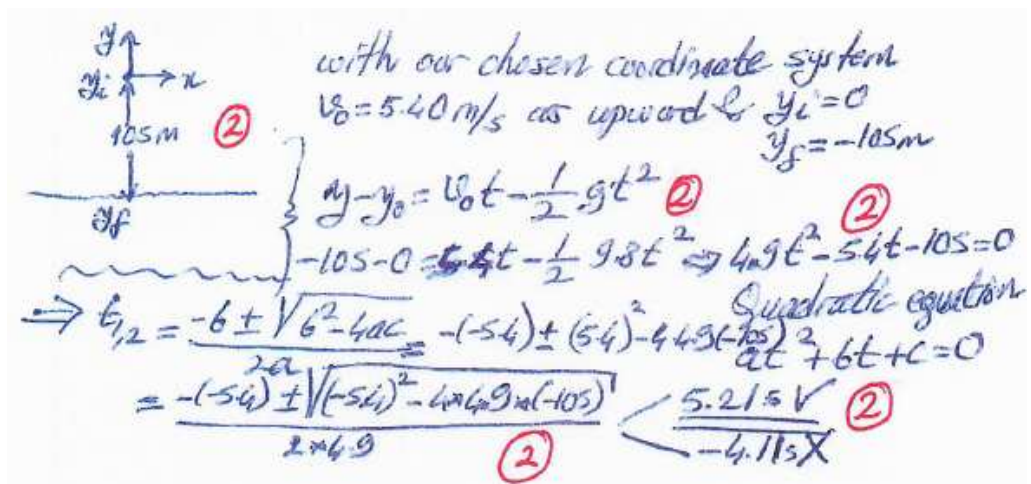 y
yᵢ → x
105m ②
y_f
with our chosen coordinate system
v₀ = 5.40 m/s as upward & yᵢ = 0
y_f = -105m
y - y₀ = v₀t - 1/2 gt² ②
-105 - 0 = 5.4t - 1/2 9.8t² ⇒ 4.9t² - 5.4t - 105 = 0 ②
Quadratic equation
at² + bt + c = 0
⇒ t₁,₂ = (-b ± √(b² - 4ac)) / 2a = -(-5.4) ± (5.4)² - 4 4.9(-105)
= (-(-5.4) ± √((-5.4)² - 4*4.9*(-105))) / 2*4.9 ②
5.21s √ ②
-4.11s X